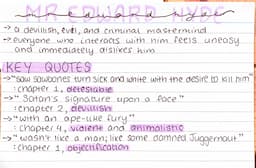 MR EDWARD HYDE
→ a devilish, evil, and criminal mastermind
→ everyone who interacts with him feels uneasy
and immediately dislikes him
KEY QUOTES
→"saw sawbones turn sick and white with the desire to kill him"
: chapter 1, detestable
→"Satan's signature upon a face."
: chapter 2, devilish
→"with an ape-like fury"
: chapter 4, violent and animalistic
→"wasn't like a man; like some damned Juggernaut"
: chapter 1, objectification